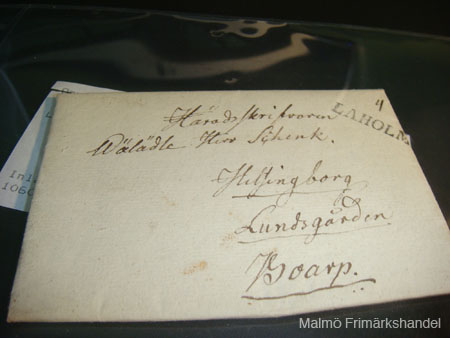 4
LAHOLM
Häradsskrifvaren
Wälädle Herr Schenk.
Helsingborg
Lundsgården
Boarp.
Inl
1060
Malmö Frimärkshandel